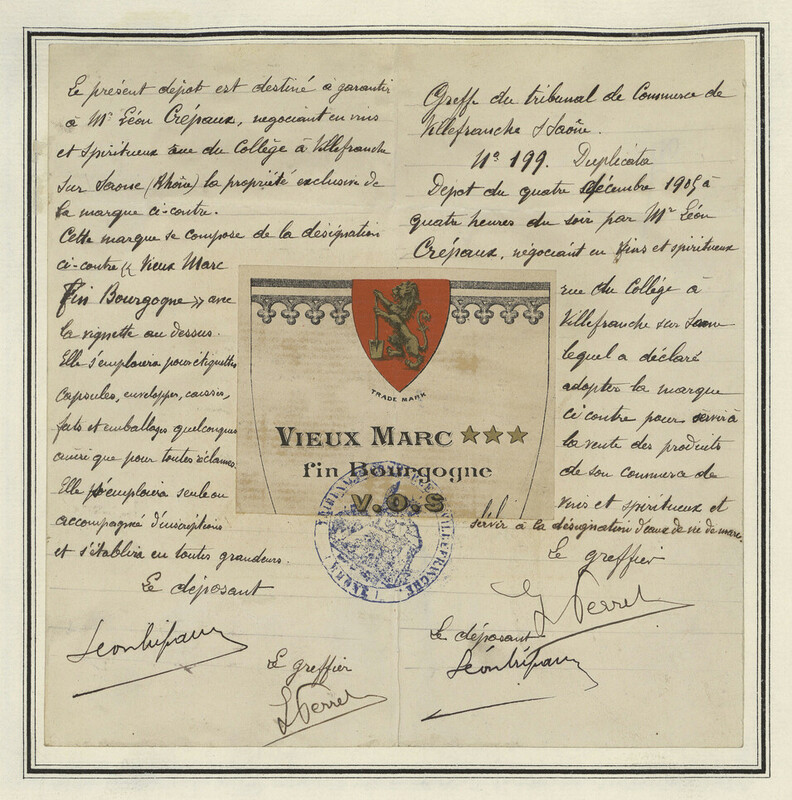 Le présent dépot est destiné à garantir
à Mr Léon Crépaux, négociant en vins
et spiritueux rue du Collège à Villefranche
sur Saone (Rhône) la propriété exclusive de
la marque ci-contre.
Cette marque se compose de la désignation
ci-contre « Vieux Marc
Fin Bourgogne » avec
la vignette au dessus.
Elle s'emploiera pour étiquettes
capsules, enveloppes, caisses,
fûts et emballages quelconques
ainsi que pour toutes réclames.
Elle s'emploiera seule ou
accompagné d'inscriptions
et s'établira en toutes grandeurs.
Le déposant
Léon Crépaux
Le greffier
Perret
TRADE MARK
VIEUX MARC ★★★
fin Bourgogne
V.O.S
TRIBUNAL VILLEFRANCHE (RHONE)
Greffe du tribunal de Commerce de
Villefranche s/ Saône.
No 199. Duplicata
Dépot du quatre décembre 1905 à
quatre heures du soir par Mr Léon
Crépaux, négociant en vins et spiritueux
rue du Collège à
Villefranche sur Saone
lequel a déclaré
adopter la marque
ci contre pour servir à
la vente des produits
de son commerce de
vins et spiritueux et
servir à la désignation d'eaux de vie de marc.
Le greffier
Perret
Le déposant
Léon Crépaux